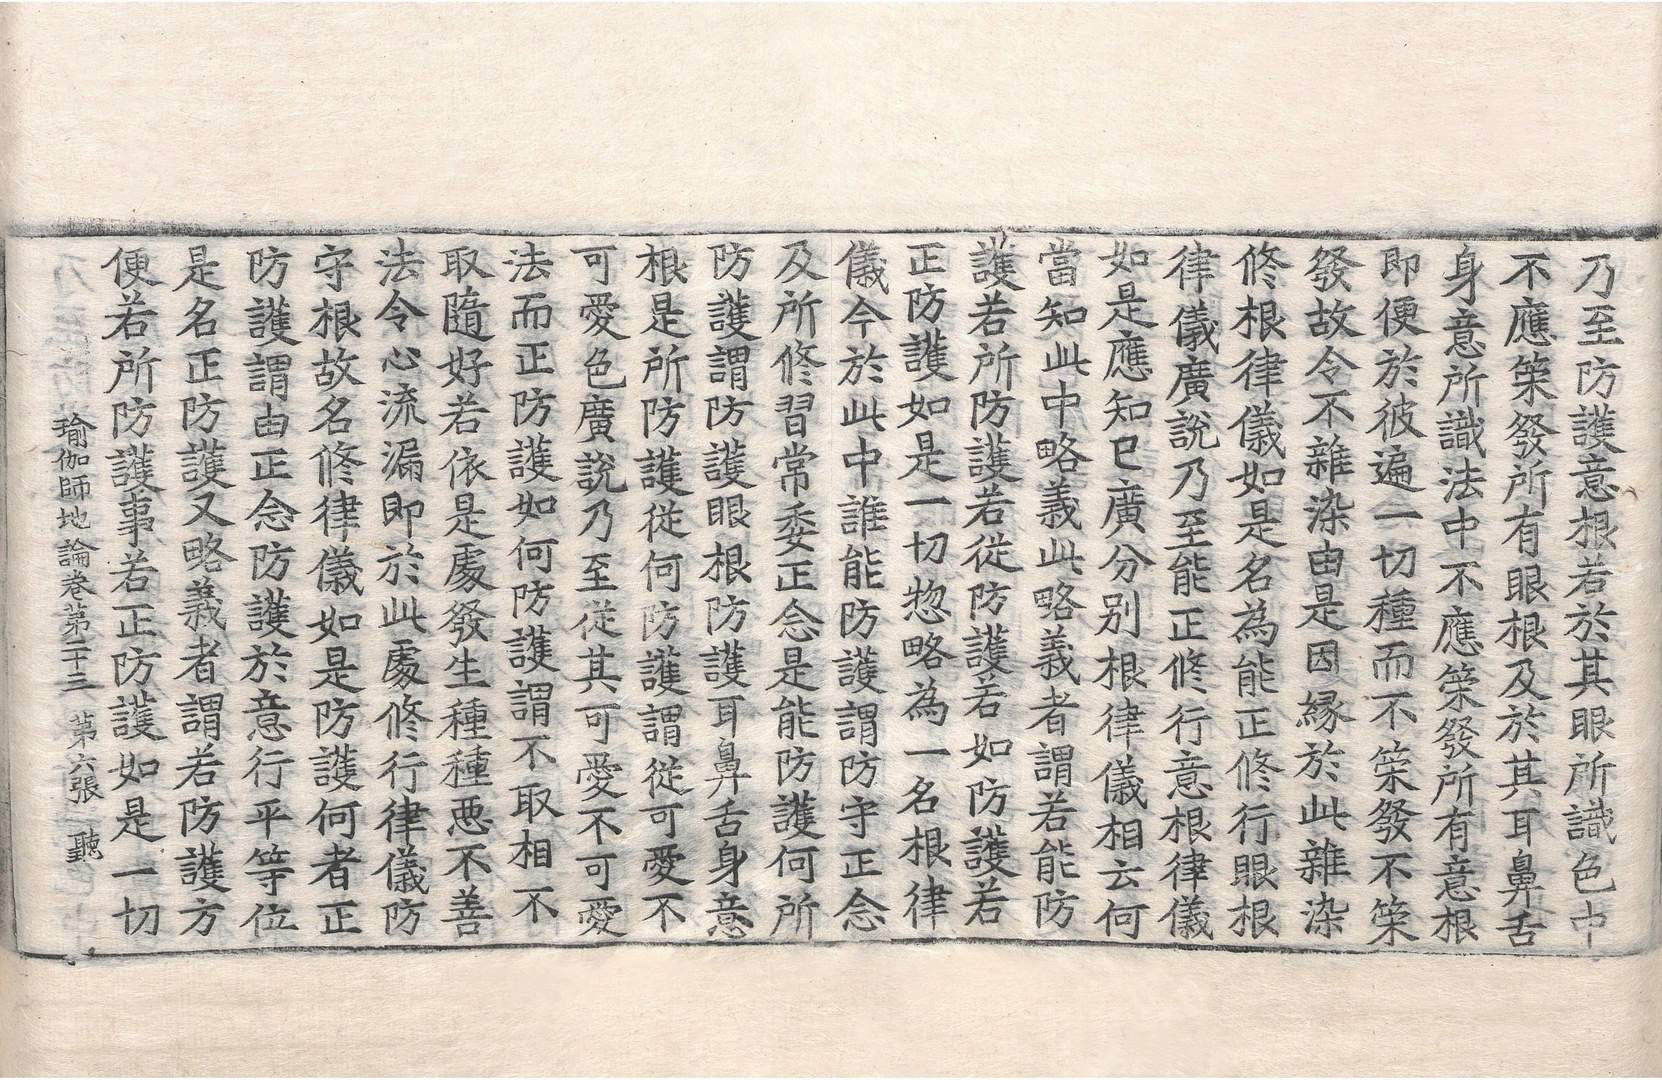 乃至防護意根若於其眼所識色中
不應策發所有眼根及於其耳鼻舌
身意所識法中不應策發所有意根
即便於彼遍一切種而不策發不策
發故令不雜染由是因緣於此雜染
修根律儀如是名為能正修行眼根
律儀廣說乃至能正修行意根律儀
如是應知已廣分別根律儀相云何
當知此中略義此略義者謂若能防
護若所防護若從防護若如防護若
正防護如是一切惣略為一名根律
儀今於此中誰能防護謂防守正念
及所修習常委正念是能防護何所
防護謂防護眼根防護耳鼻舌身意
根是所防護從何防護謂從可愛不
可愛色廣說乃至從其可愛不可愛
法而正防護如何防護謂不取相不
取隨好若依是處發生種種惡不善
法令心流漏即於此處修行律儀防
守根故名修律儀如是防護何者正
防護謂由正念防護於意行平等位
是名正防護又略義者謂若防護方
便若所防護事若正防護如是一切
瑜伽師地論卷第二十三 第六張 聽